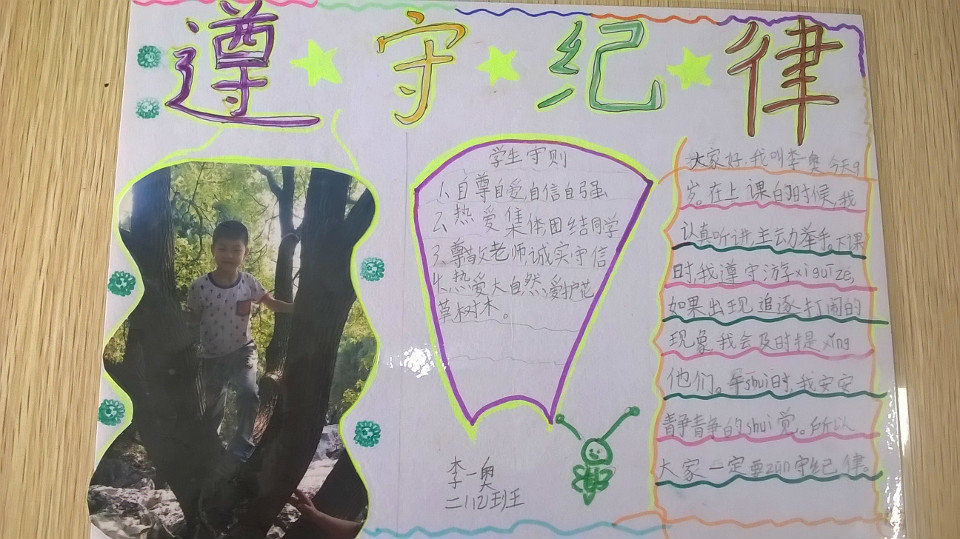 遵守纪律
学生守则
1、自尊自爱自信自强
2、热爱集体团结同学
3、尊敬老师诚实守信
4、热爱大自然,爱护花
草树木。
李一奥
二(6)班
大家好,我叫李一奥今天9
岁。在上课的时候,我
认真听讲,主动举手,下课
时我遵守游子xiguize,
如果出现追逐打闹的
现象,我会及时提xing
他们。午shui时,我安安
静静的shui觉。所以
大家一定要zun守纪律。